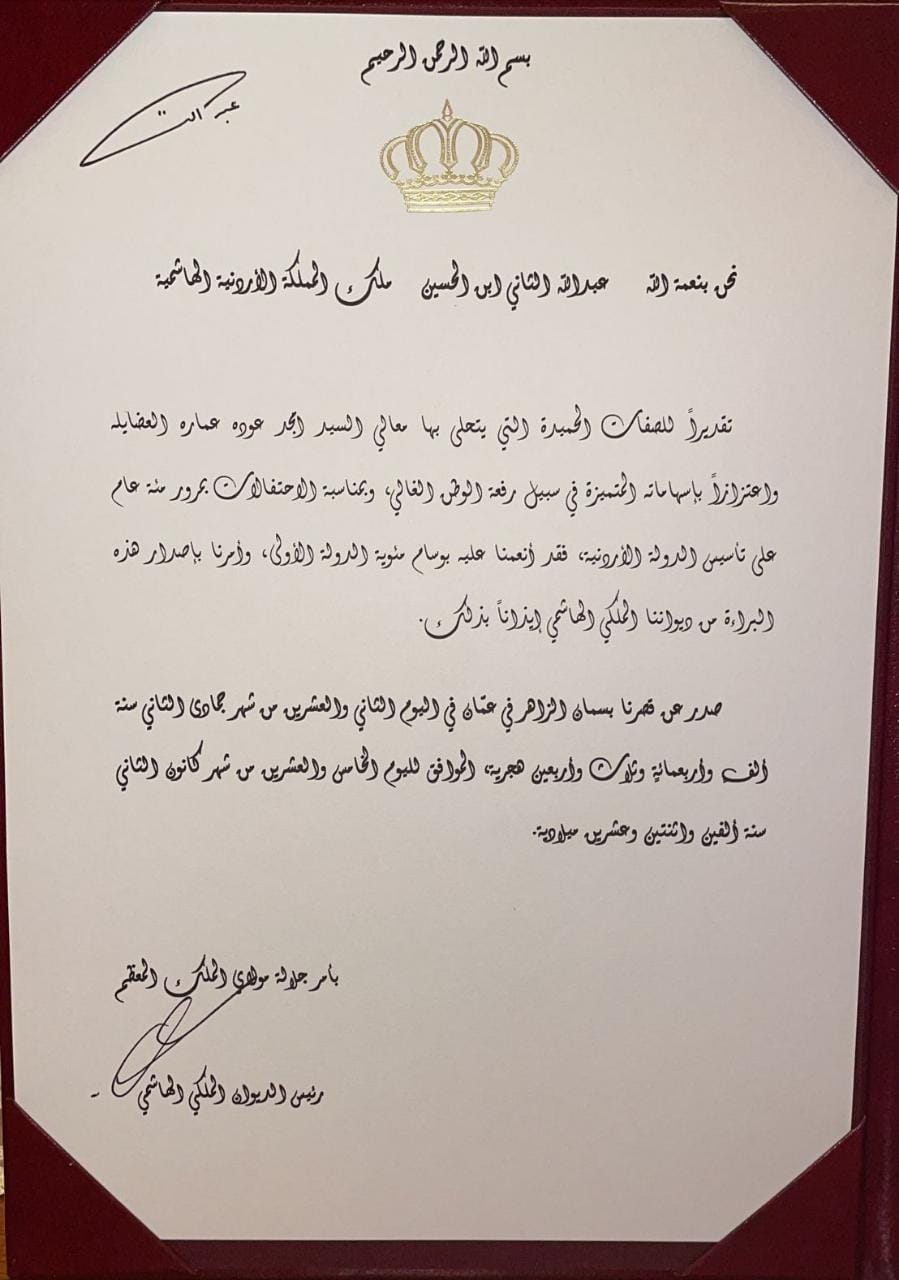 بسم الله الرحمن الرحيم
نحن بنعمة الله عبدالله الثاني ابن الحسين ملك المملكة الأردنية الهاشمية
تقديراً للصفات الحميدة التي يتحلى بها معالي السيد امجد عوده عماره العضايله
واعتزازاً بإسهاماته المتميزة في سبيل رفعة الوطن الغالي، وبمناسبة الاحتفالات بمرور مئة عام
على تأسيس الدولة الأردنية، فقد أنعمنا عليه بوسام مئوية الدولة الأولى، وأمرنا بإصدار هذه
البراءة من ديواننا الملكي الهاشمي إيذاناً بذلك.
صدر عن قصرنا بسمان الزاهر في عمّان في اليوم الثاني والعشرين من شهر جمادى الثاني سنة
ألف وأربعمائة وثلاث وأربعين هجرية، الموافق لليوم الخامس والعشرين من شهر كانون الثاني
سنة ألفين واثنتين وعشرين ميلادية.
بأمر جلالة مولاي الملك المعظم
رئيس الديوان الملكي الهاشمي